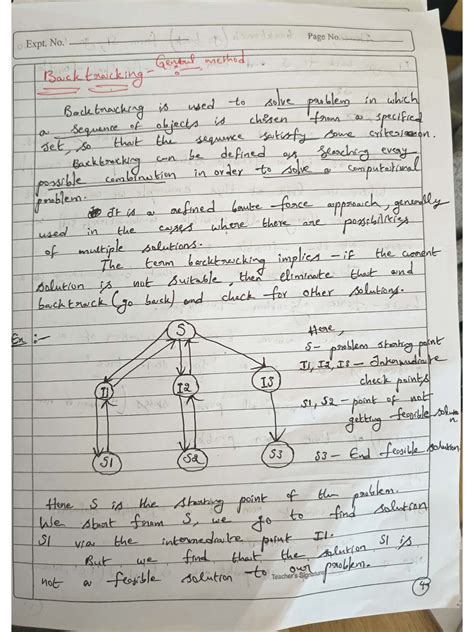 Expt. No.
Page No.
Backtracking - General method
Backtracking is used to solve problem in which
a sequence of objects is chosen from a specified
set, so that the sequence satisfy some criterion.
Backtracking can be defined as searching every
possible combination in order to solve a computational
problem.
It is a refined brute-force approach, generally
used in the cases where there are possibilities
of multiple solutions.
The term backtracking implies - if the current
solution is not suitable, then eliminate that and
backtrack (go back) and check for other solutions.
Ex :-
S
I1
I2
I3
S1
S2
S3
Here,
S - problem starting point
I1, I2, I3 - Intermediate
check points
S1, S2 - point of not
getting feasible solution
S3 - End feasible solution
Here S is the starting point of the problem.
We start from S, we go to find solution
S1 via the intermediate point I1.
But we find that the solution S1 is
not a feasible solution to our problem.
Teacher's Signature
4